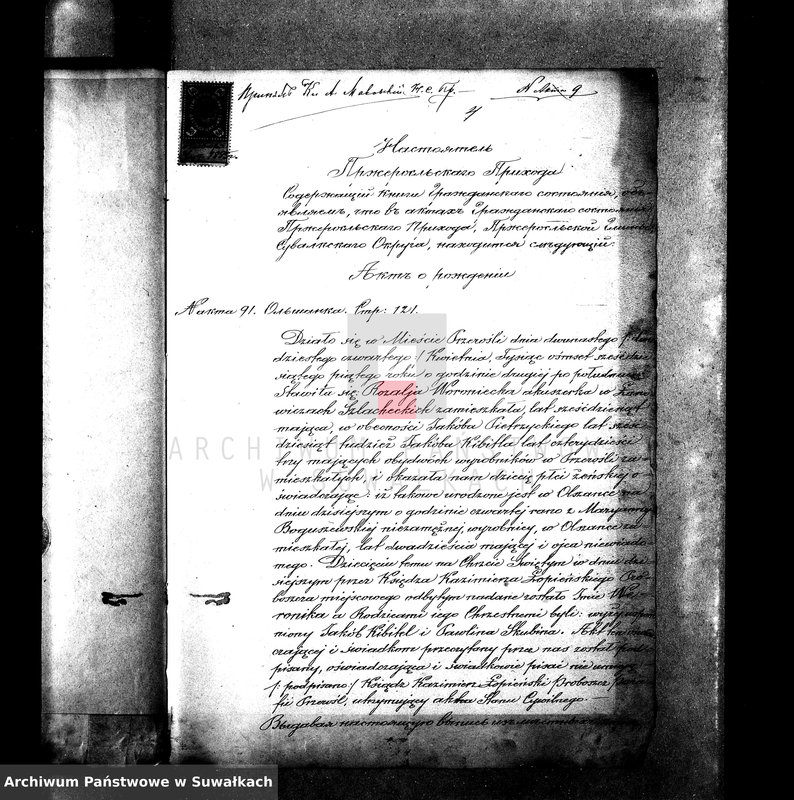 Принялъ Кс. А.
N 9
Настоятель
Пржеросльскаго Прихода
Содержащій книги гражданскаго состоянія, объ-
являемъ, что въ актахъ гражданскаго состоянія
Пржеросльскаго Прихода, Пржеросльской гмины
Сувалкскаго Округа, находится слѣдующій:
Актъ о рожденіи
N акта 91. Ольшанка. Стр: 121.
Działo się w Mieście Przerośli dnia dwunastego /dwu
dziestego czwartego/ Kwietnia, Tysiąc ośmset sześćdzie
siątego piątego roku o godzinie drugiej po południu
Stawiła się Rozalja Woroniecka akuszerka w
wiczach Szlacheckich zamieszkała, lat sześćdziesiąt
mająca, w obecności Jakóba Pietrzyckiego lat sześć
dziesiąt tudzież Jakóba Kibitla lat czterydzieści
trzy mających obydwóch wyrobników w Przerośli za-
mieszkałych, i okazała nam dziecię płci żeńskiej o-
świadczając: iż takowe urodzone jest w Olszance na
dniu dzisiejszym o godzinie czwartej rano z Maryanny
Boguszewskiej niezamężnej wyrobnicy, w Olszance za
mieszkałej, lat dwadzieścia mającej i ojca niewiado-
mego. Dziecięciu temu na Chrzcie Świętym w dniu dzi-
siejszym przez Księdza Kazimierza Łopieńskiego Pro-
boszcza miejscowego odbytym nadane zostało Imie We-
ronika a Rodzicami jego Chrzestnemi byli: wyżej wspom
niony Jakób Kibitel i Pawlina Skubina. Akt ten oświad
czającej i świadkom przeczytany przez nas został pod
pisany, oświadczająca i świadkowie pisać nie umieją
/:podpisano:/ Ksiądz Kazimierz Łopieński Proboszcz Para
fii Przerośl, utrzymujący akta Stanu Cywilnego.
Выдавая настоящую выпись
ARCHIWUM PAŃSTWOWE
W SUWAŁKACH
Archiwum Państwowe w Suwałkach